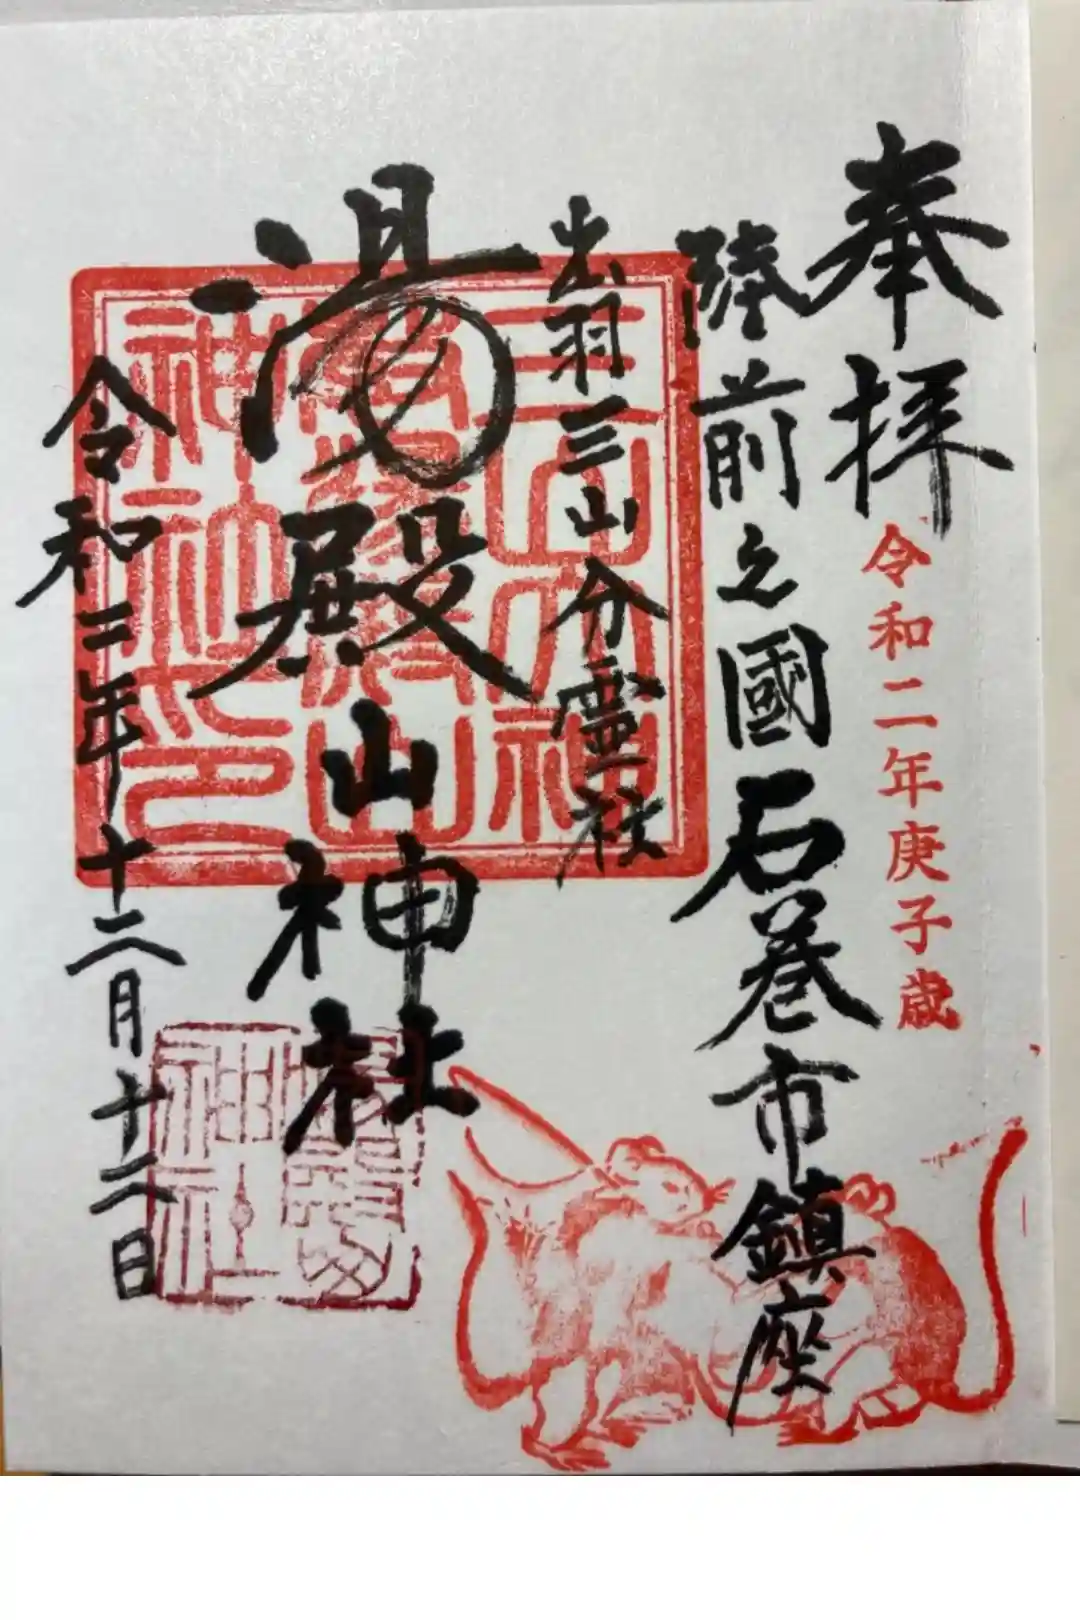 奉拝
令和二年庚子歳
陸前之國石巻市鎮座
出羽三山分霊社
湯殿山神社
令和二年十二月十二日